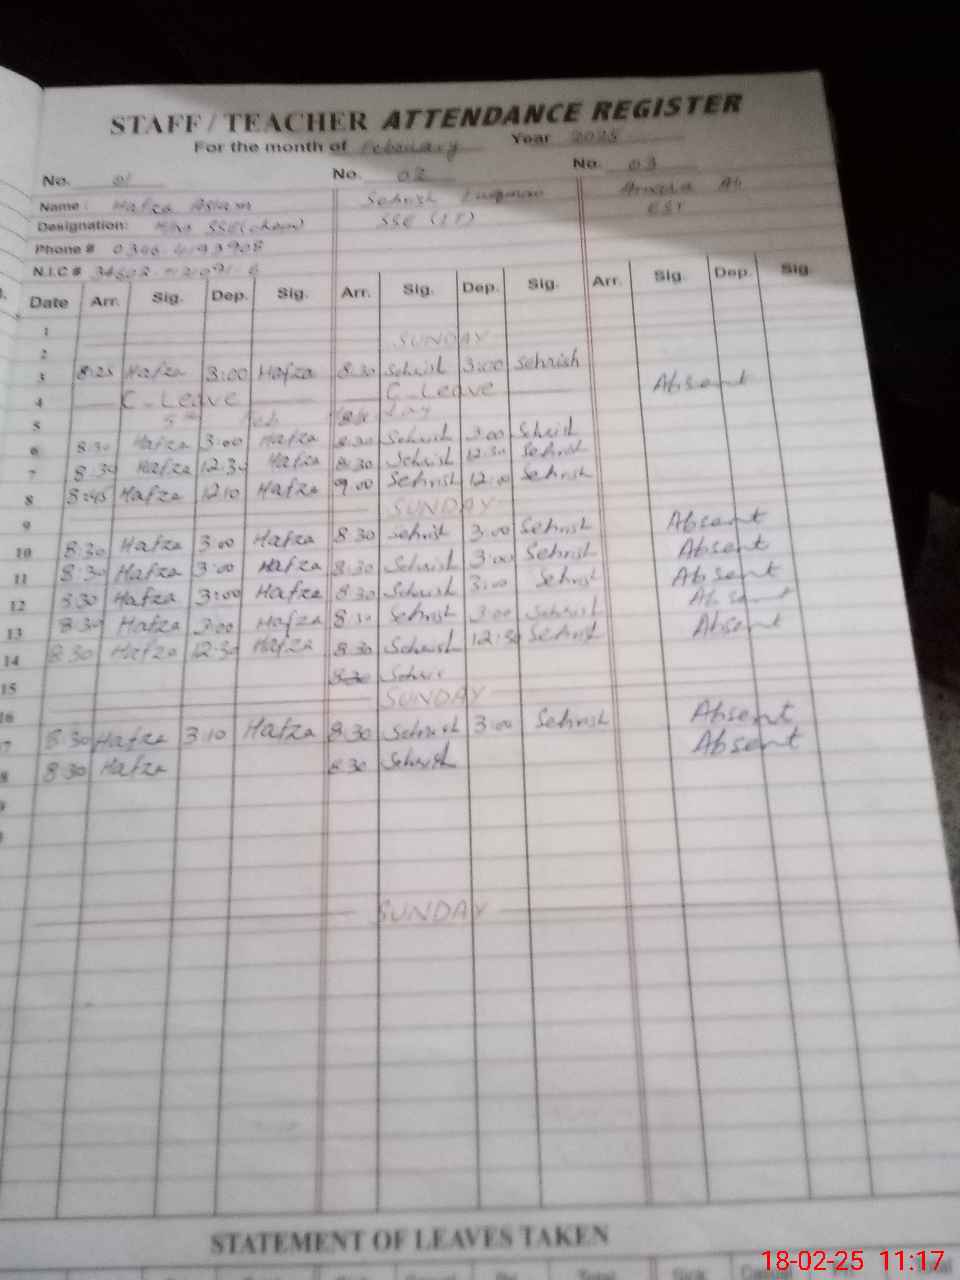 STAFF / TEACHER ATTENDANCE REGISTER
For the month of February Year 2025
No. 01 No. 02 No. 03
Name: Hafza Aslam Sehrish Luqman
Designation: SSE (Chem) SSE (IT) EST
Phone #
N.I.C #
Date Arr. Sig. Dep. Sig. Arr. Sig. Dep. Sig. Arr. Sig. Dep. Sig.
1
2 SUNDAY
3 8:25 Hafza 3:00 Hafza 8:30 Sehrish 3:00 Sehrish
4 C-Leave C-Leave Absent
5
6 8:30 Hafza 3:00 Hafza 8:30 Sehrish 3:00 Sehrish
7 8:30 Hafza 12:30 Hafza 8:30 Sehrish 12:30 Sehrish
8 8:45 Hafza 12:10 Hafza 9:00 Sehrish 12:00 Sehrish
9 SUNDAY
10 8:30 Hafza 3:00 Hafza 8:30 Sehrish 3:00 Sehrish Absent
11 8:30 Hafza 3:00 Hafza 8:30 Sehrish 3:00 Sehrish Absent
12 8:30 Hafza 3:00 Hafza 8:30 Sehrish 3:00 Sehrish Absent
13 8:30 Hafza 3:00 Hafza 8:30 Sehrish 3:00 Sehrish Absent
14 8:30 Hafza 12:30 Hafza 8:30 Sehrish 12:30 Sehrish Absent
15 8:30
16 SUNDAY
17 8:30 Hafza 3:10 Hafza 8:30 Sehrish 3:00 Sehrish Absent
8 8:30 Hafza 8:30 Sehrish Absent
SUNDAY
STATEMENT OF LEAVES TAKEN
18-02-25 11:17